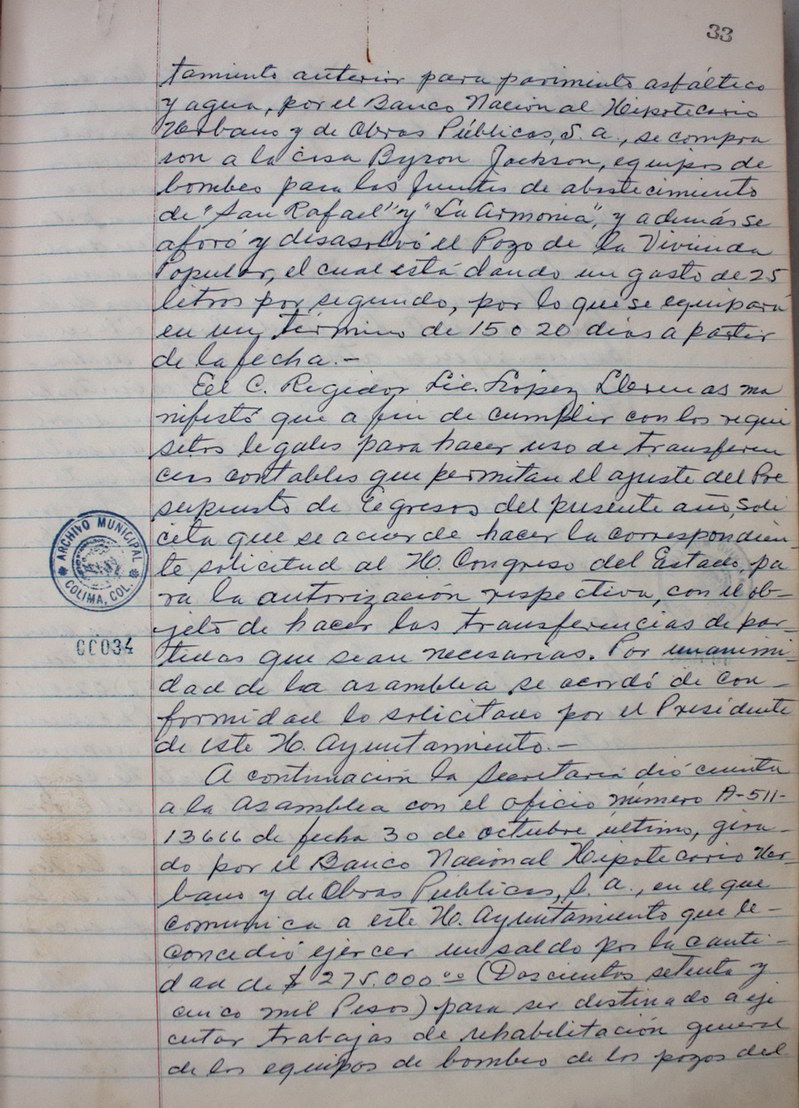 33
tamiento anterior para pavimento asfáltico
y agua, por el Banco Nacional Hipotecario
Hurbano y de Obras Públicas, S. a., se compra
ron a la casa Byron Jackson, equipos de
bombeo para las fuentes de abastecimiento
de "San Rafael" y "La Armonia", y además se
aforó y desasolvó el Pozo de la Vivienda
Popular, el cual está dando un gasto de 25
litros por segundo, por lo que se equipará
en un término de 15 o 20 dias a partir
de la fecha.-
Eel C. Regidor Lic. López Llerenas ma
nifestó que a fin de cumplir con los requi
sitos legales para hacer uso de transferen
cias contables que permitan el ajuste del Pre
supuesto de Egresos del presente año, soli
cita que se acuerde hacer la correspondien_
te solicitud al H. Congreso del Estado, pa
ra la autorización respectiva, con el ob-
jeto de hacer las transferencias de par-
tidas que sean necesarias. Por unanimi-
dad de la asamblea se acordó de con_
formidad lo solicitado por el Presidente
de este H. Ayuntamiento.-
A continuación la Secretaria dió cuenta
a la asamblea con el oficio número A-511-
13666 de fecha 30 de octubre último, gira_
do por el Banco Nacional Hipotecario Hur_
bano y de Obras Públicas, S. a., en el que
comunica a este H. Ayuntamiento que le-
concedió ejercer un saldo por la canti-
dad de $ 275.000.00 (Doscientos setenta y
cinco mil Pesos) para ser destinado a eje
cutar trabajos de rehabilitación general
de los equipos de bombeo de los pozos del
ARCHIVO MUNICIPAL
COLIMA, COL.
00034